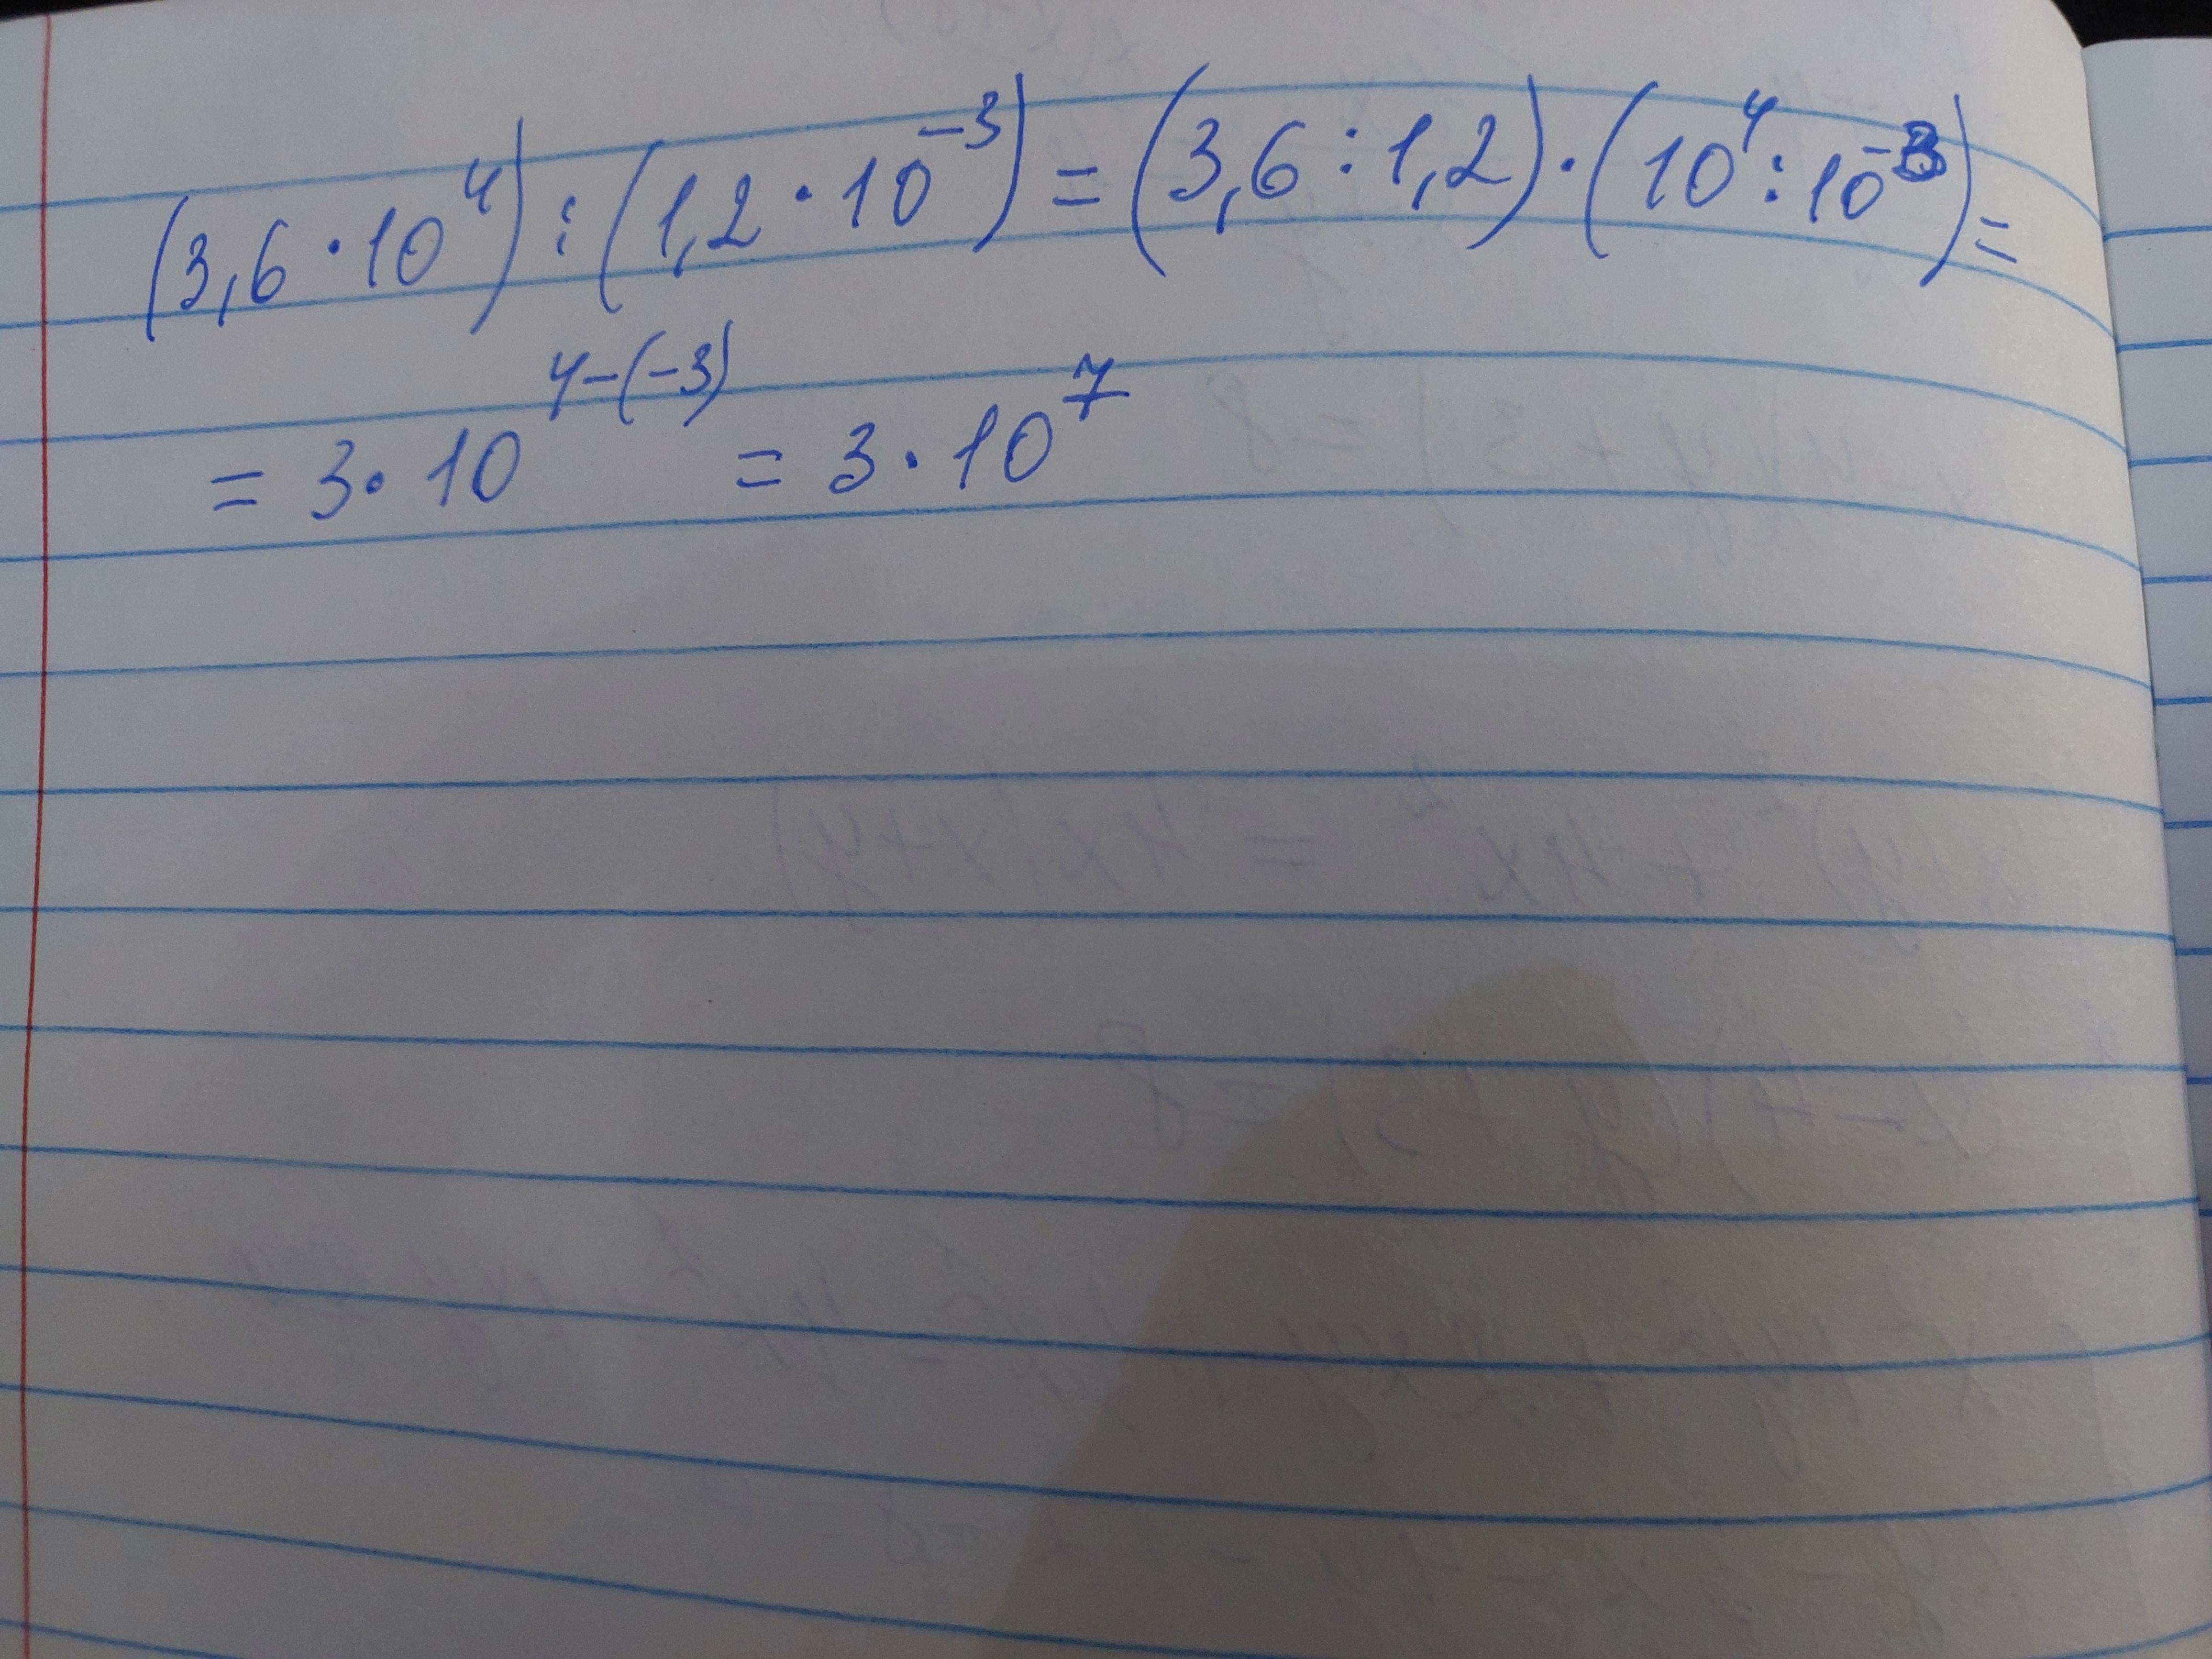 (3,6 · 10⁴) : (1,2 · 10⁻³) = (3,6 : 1,2) · (10⁴ : 10⁻³) =
= 3 · 10⁴⁻⁽⁻³⁾ = 3 · 10⁷